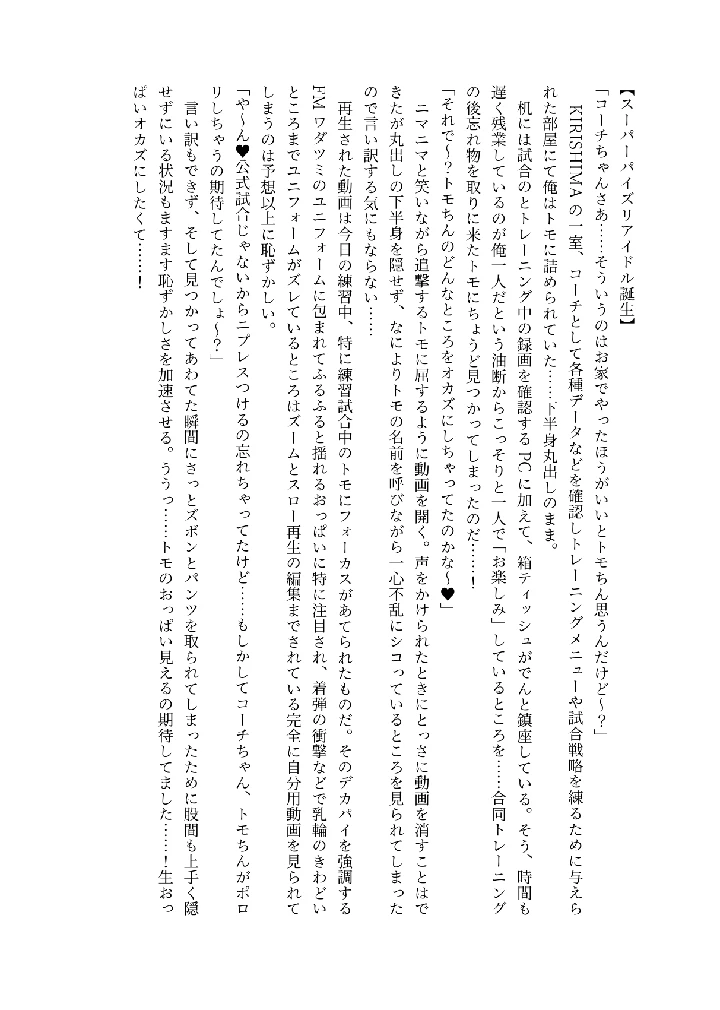 【スーパーパイズリアイドル誕生】
「コーチちゃんさあ……そういうのはお家でやったほうがいいとトモちん思うんだけど～？」
　KIRISHIMAの一室、コーチとして各種データなどを確認しトレーニングメニューや試合戦略を練るために与えら
れた部屋にて俺はトモに詰められていた……下半身丸出しのまま。
　机には試合のとトレーニング中の録画を確認するPCに加えて、箱ティッシュがでんと鎮座している。そう、時間も
遅く残業しているのが俺一人だという油断からこっそりと一人で「お楽しみ」しているところを……合同トレーニング
の後忘れ物を取りに来たトモにちょうど見つかってしまったのだ……！
「それで～？トモちんのどんなところをオカズにしちゃってたのかな～♥」
　ニマニマと笑いながら追撃するトモに屈するように動画を開く。声をかけられたときにとっさに動画を消すことはで
きたが丸出しの下半身を隠せず、なによりトモの名前を呼びながら一心不乱にシコっているところを見られてしまった
ので言い訳する気にもならない……
　再生された動画は今日の練習中、特に練習試合中のトモにフォーカスがあてられたものだ。そのデカパイを強調する
EMワダツミのユニフォームに包まれてふるふると揺れるおっぱいに特に注目され、着弾の衝撃などで乳輪のきわどい
ところまでユニフォームがズレているところはズームとスロー再生の編集までされている完全に自分用動画を見られて
しまうのは予想以上に恥ずかしい。
「や～ん♥公式試合じゃないからニプレスつけるの忘れちゃってたけど……もしかしてコーチちゃん、トモちんがポロ
リしちゃうの期待してたんでしょ～？」
　言い訳もできず、そして見つかってあわてた瞬間にさっとズボンとパンツを取られてしまったために股間も上手く隠
せずにいる状況もますます恥ずかしさを加速させる。ううっ……トモのおっぱい見えるの期待してました……！生おっ
ぱいオカズにしたくて……！